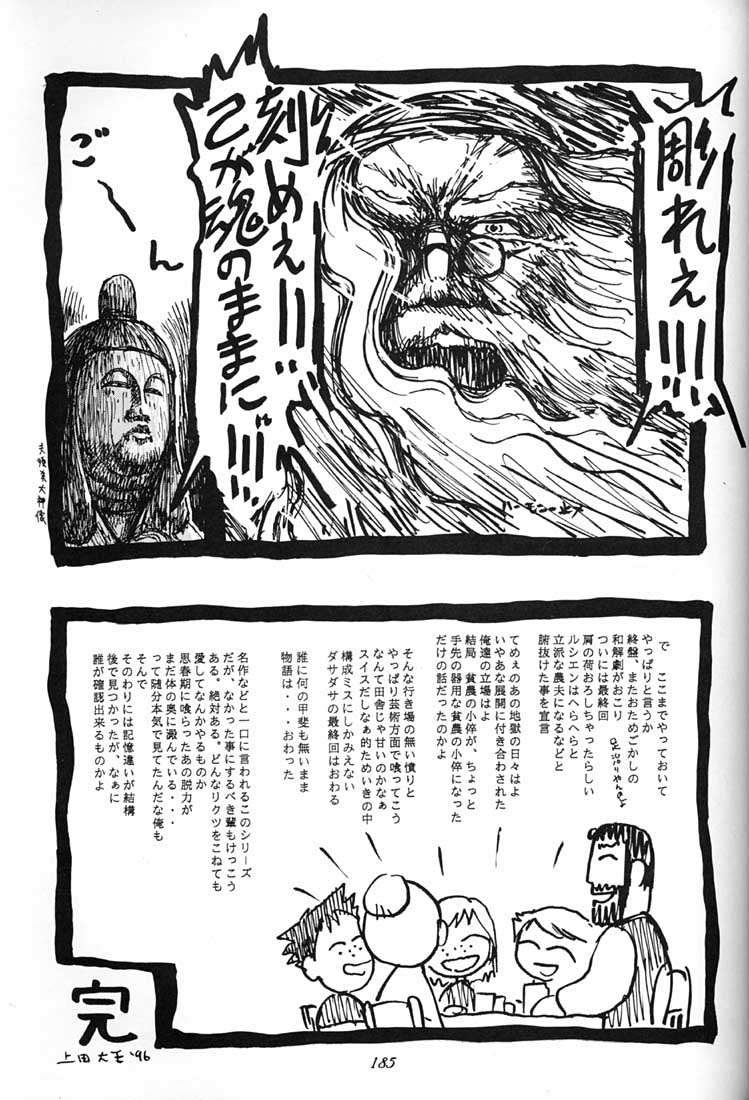 彫れぇ!!!
刻めぇ!!
己が魂のままに!!!
ごーん
で　ここまでやっておいて
やっぱりと言うか
終盤、またおためごかしの
和解劇がおこり
ついには最終回
肩の荷おろしちゃったらしい
ルシエンはへらへらと
立派な農夫になるなどと
腑抜けた事を宣言
てめぇのあの地獄の日々はよ
いやあな展開に付き合わされた
俺達の立場はよ
結局　貧農の小倅が、ちょっと
手先の器用な貧農の小倅になった
だけの話だったのかよ
そんな行き場の無い憤りと
やっぱり芸術方面で喰ってこう
なんて田舎じゃ甘いのかなぁ
スイスだしなぁ的ためいきの中
構成ミスにしかみえない
ダサダサの最終回はおわる
誰に何の甲斐も無いまま
物語は・・・おわった
名作などと一口に言われるこのシリーズ
だが、なかった事にするべき輩もけっこう
ある。絶対ある。どんなリクツをこねても
愛してなんかやるものか
思春期に喰らったあの脱力が
まだ体の奥に澱んでいる・・・
って随分本気で見てたんだな俺も
そんで
そのわりには記憶違いが結構
後で見つかったが、なぁに
誰が確認出来るものかよ
完
'96
185